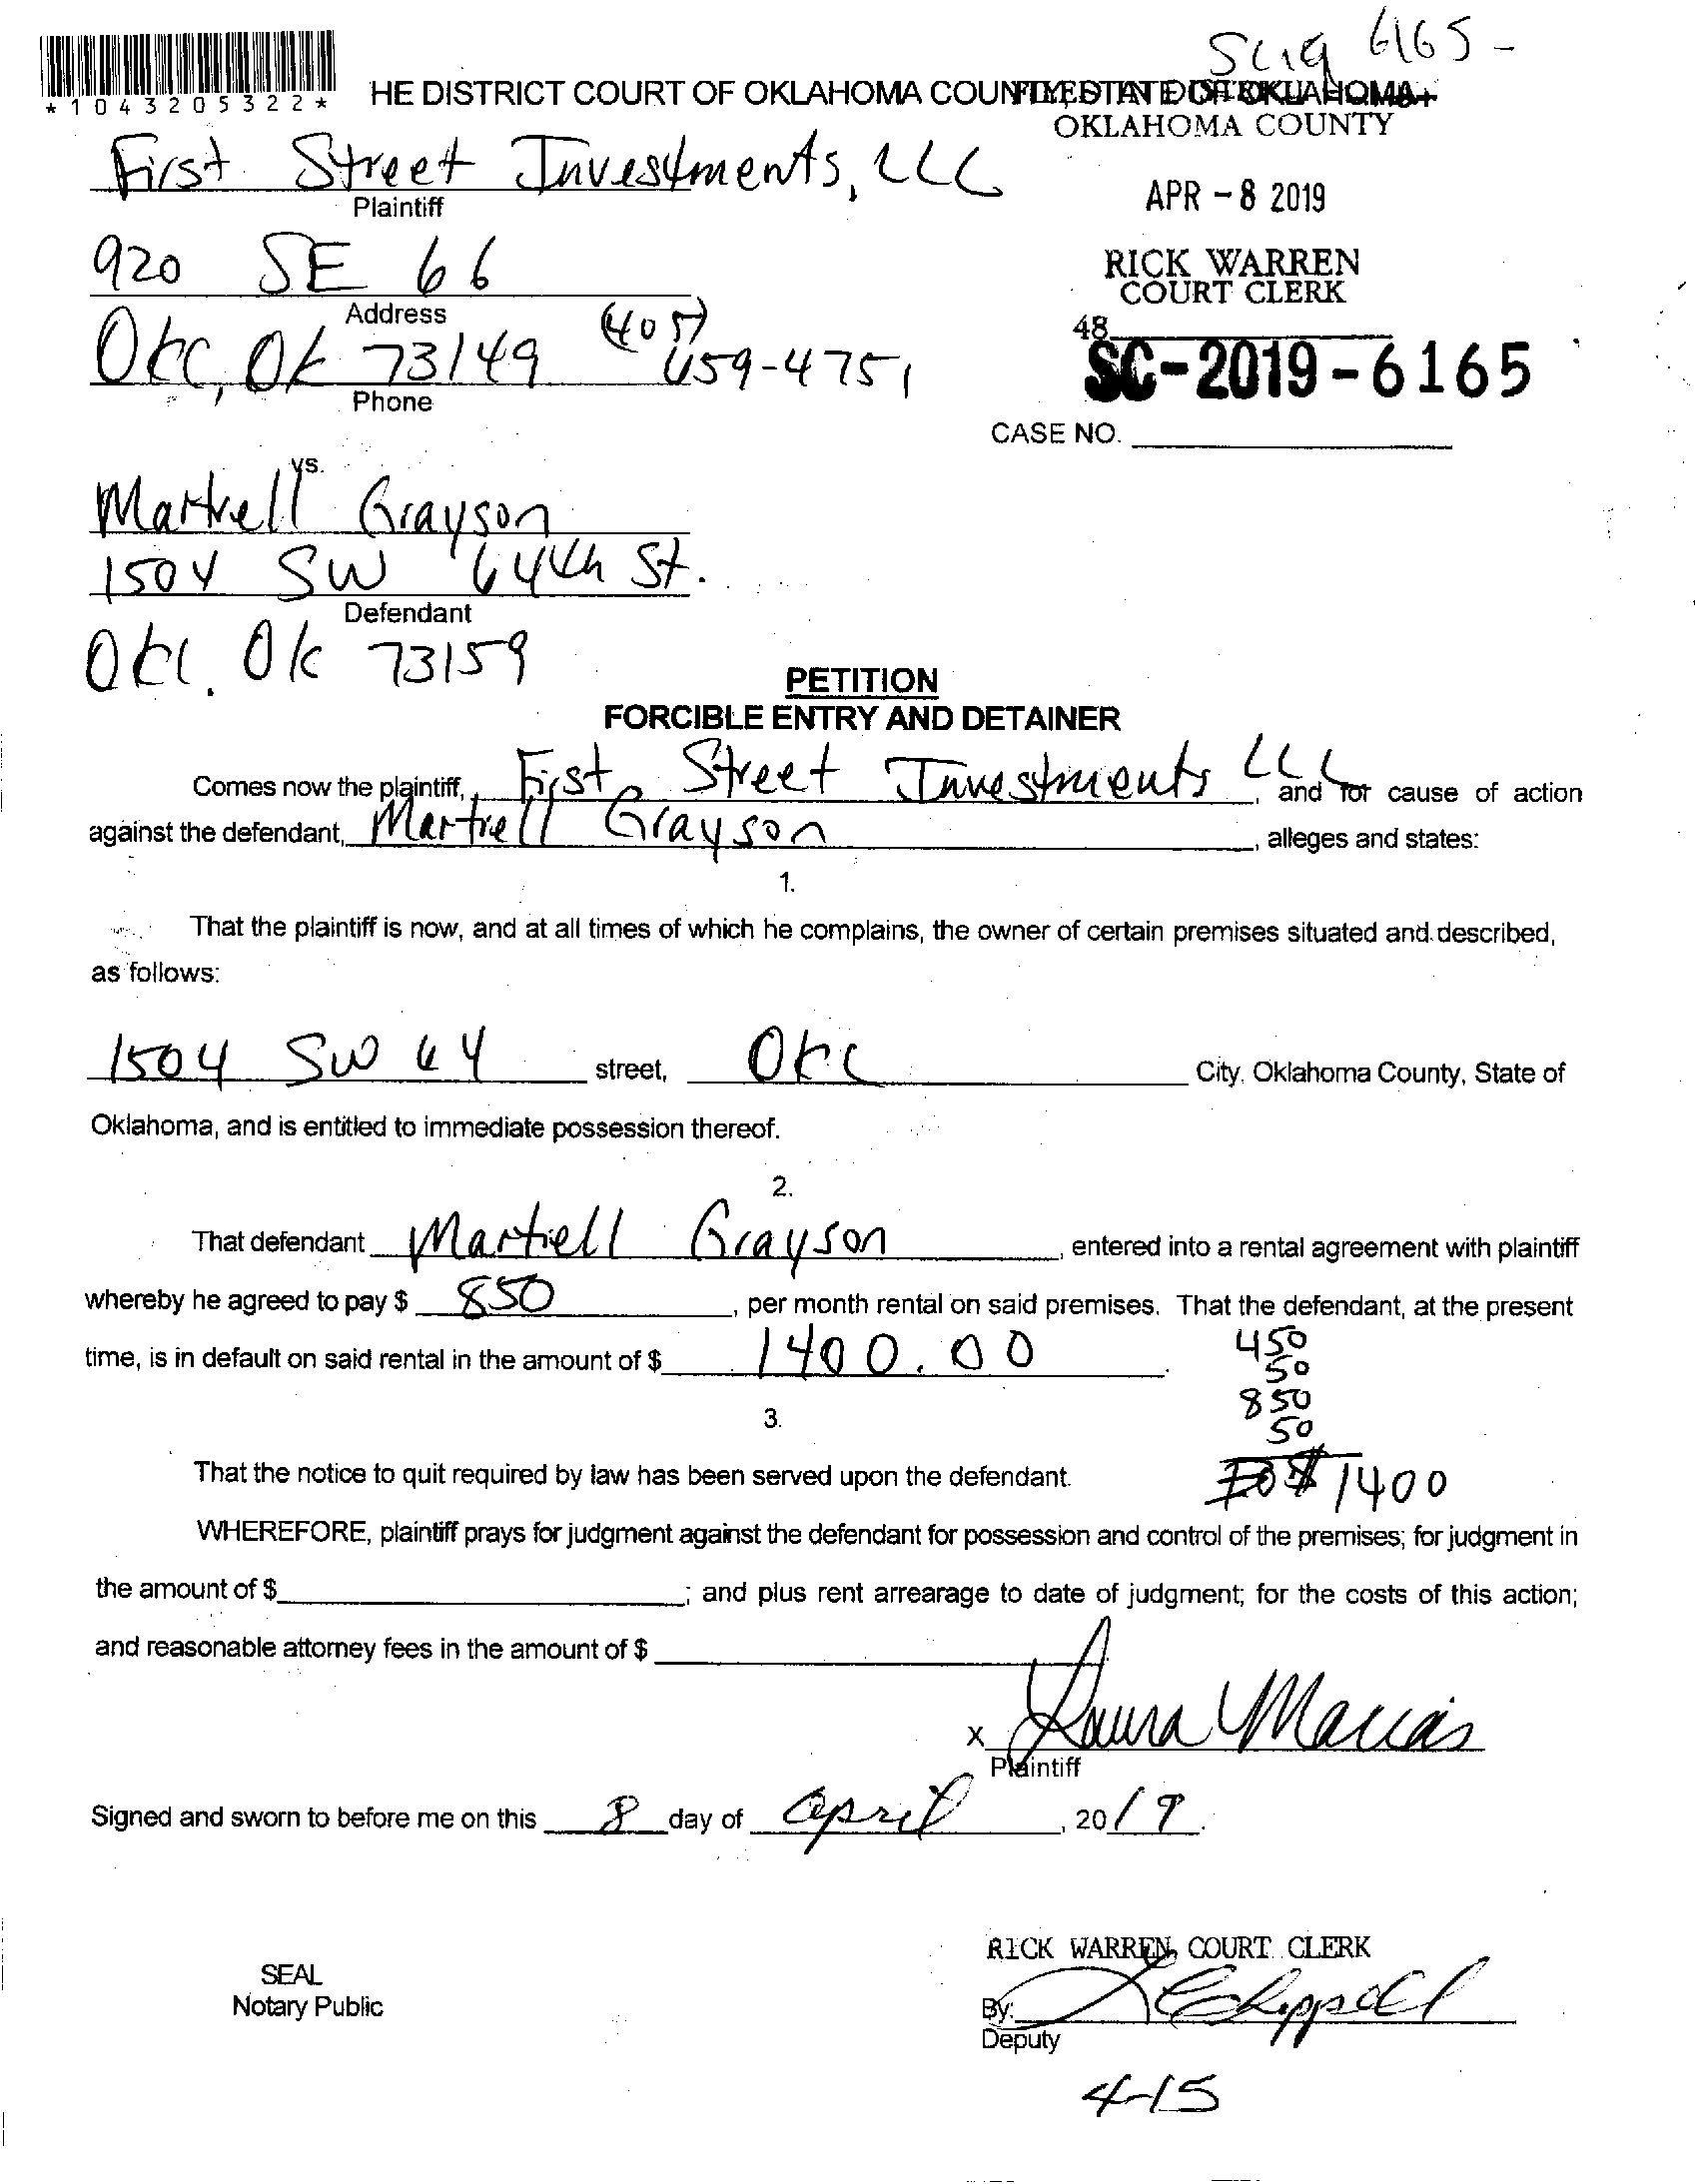 SC19 6165-
*1043205322*
HE DISTRICT COURT OF OKLAHOMA COUNTY, STATE OF OKLAHOMA
OKLAHOMA COUNTY
First Street Investments, LLC
Plaintiff
APR - 8 2019
920 SE 66
Address
RICK WARREN
COURT CLERK
OKC, OK 73149 (405) 659-4751
Phone
48
SC-2019-6165
CASE NO.
vs.
Martrell Grayson
1504 SW 64th St.
Defendant
OKC. Ok 73159
PETITION
FORCIBLE ENTRY AND DETAINER
Comes now the plaintiff, First Street Investments LLC, and for cause of action
against the defendant, Martrell Grayson, alleges and states:
1.
That the plaintiff is now, and at all times of which he complains, the owner of certain premises situated and described,
as follows:
1504 SW 64 street, OKC City, Oklahoma County, State of
Oklahoma, and is entitled to immediate possession thereof.
2.
That defendant Martrell Grayson, entered into a rental agreement with plaintiff
whereby he agreed to pay $ 850, per month rental on said premises. That the defendant, at the present
time, is in default on said rental in the amount of $ 1400.00.
450
50
850
50
3.
That the notice to quit required by law has been served upon the defendant.
$ 1400
WHEREFORE, plaintiff prays for judgment against the defendant for possession and control of the premises; for judgment in
the amount of $ ; and plus rent arrearage to date of judgment; for the costs of this action;
and reasonable attorney fees in the amount of $
x Laura Macias
Plaintiff
Signed and sworn to before me on this 8 day of April, 2019.
RICK WARREN, COURT CLERK
SEAL
Notary Public
By:
Deputy
4-15